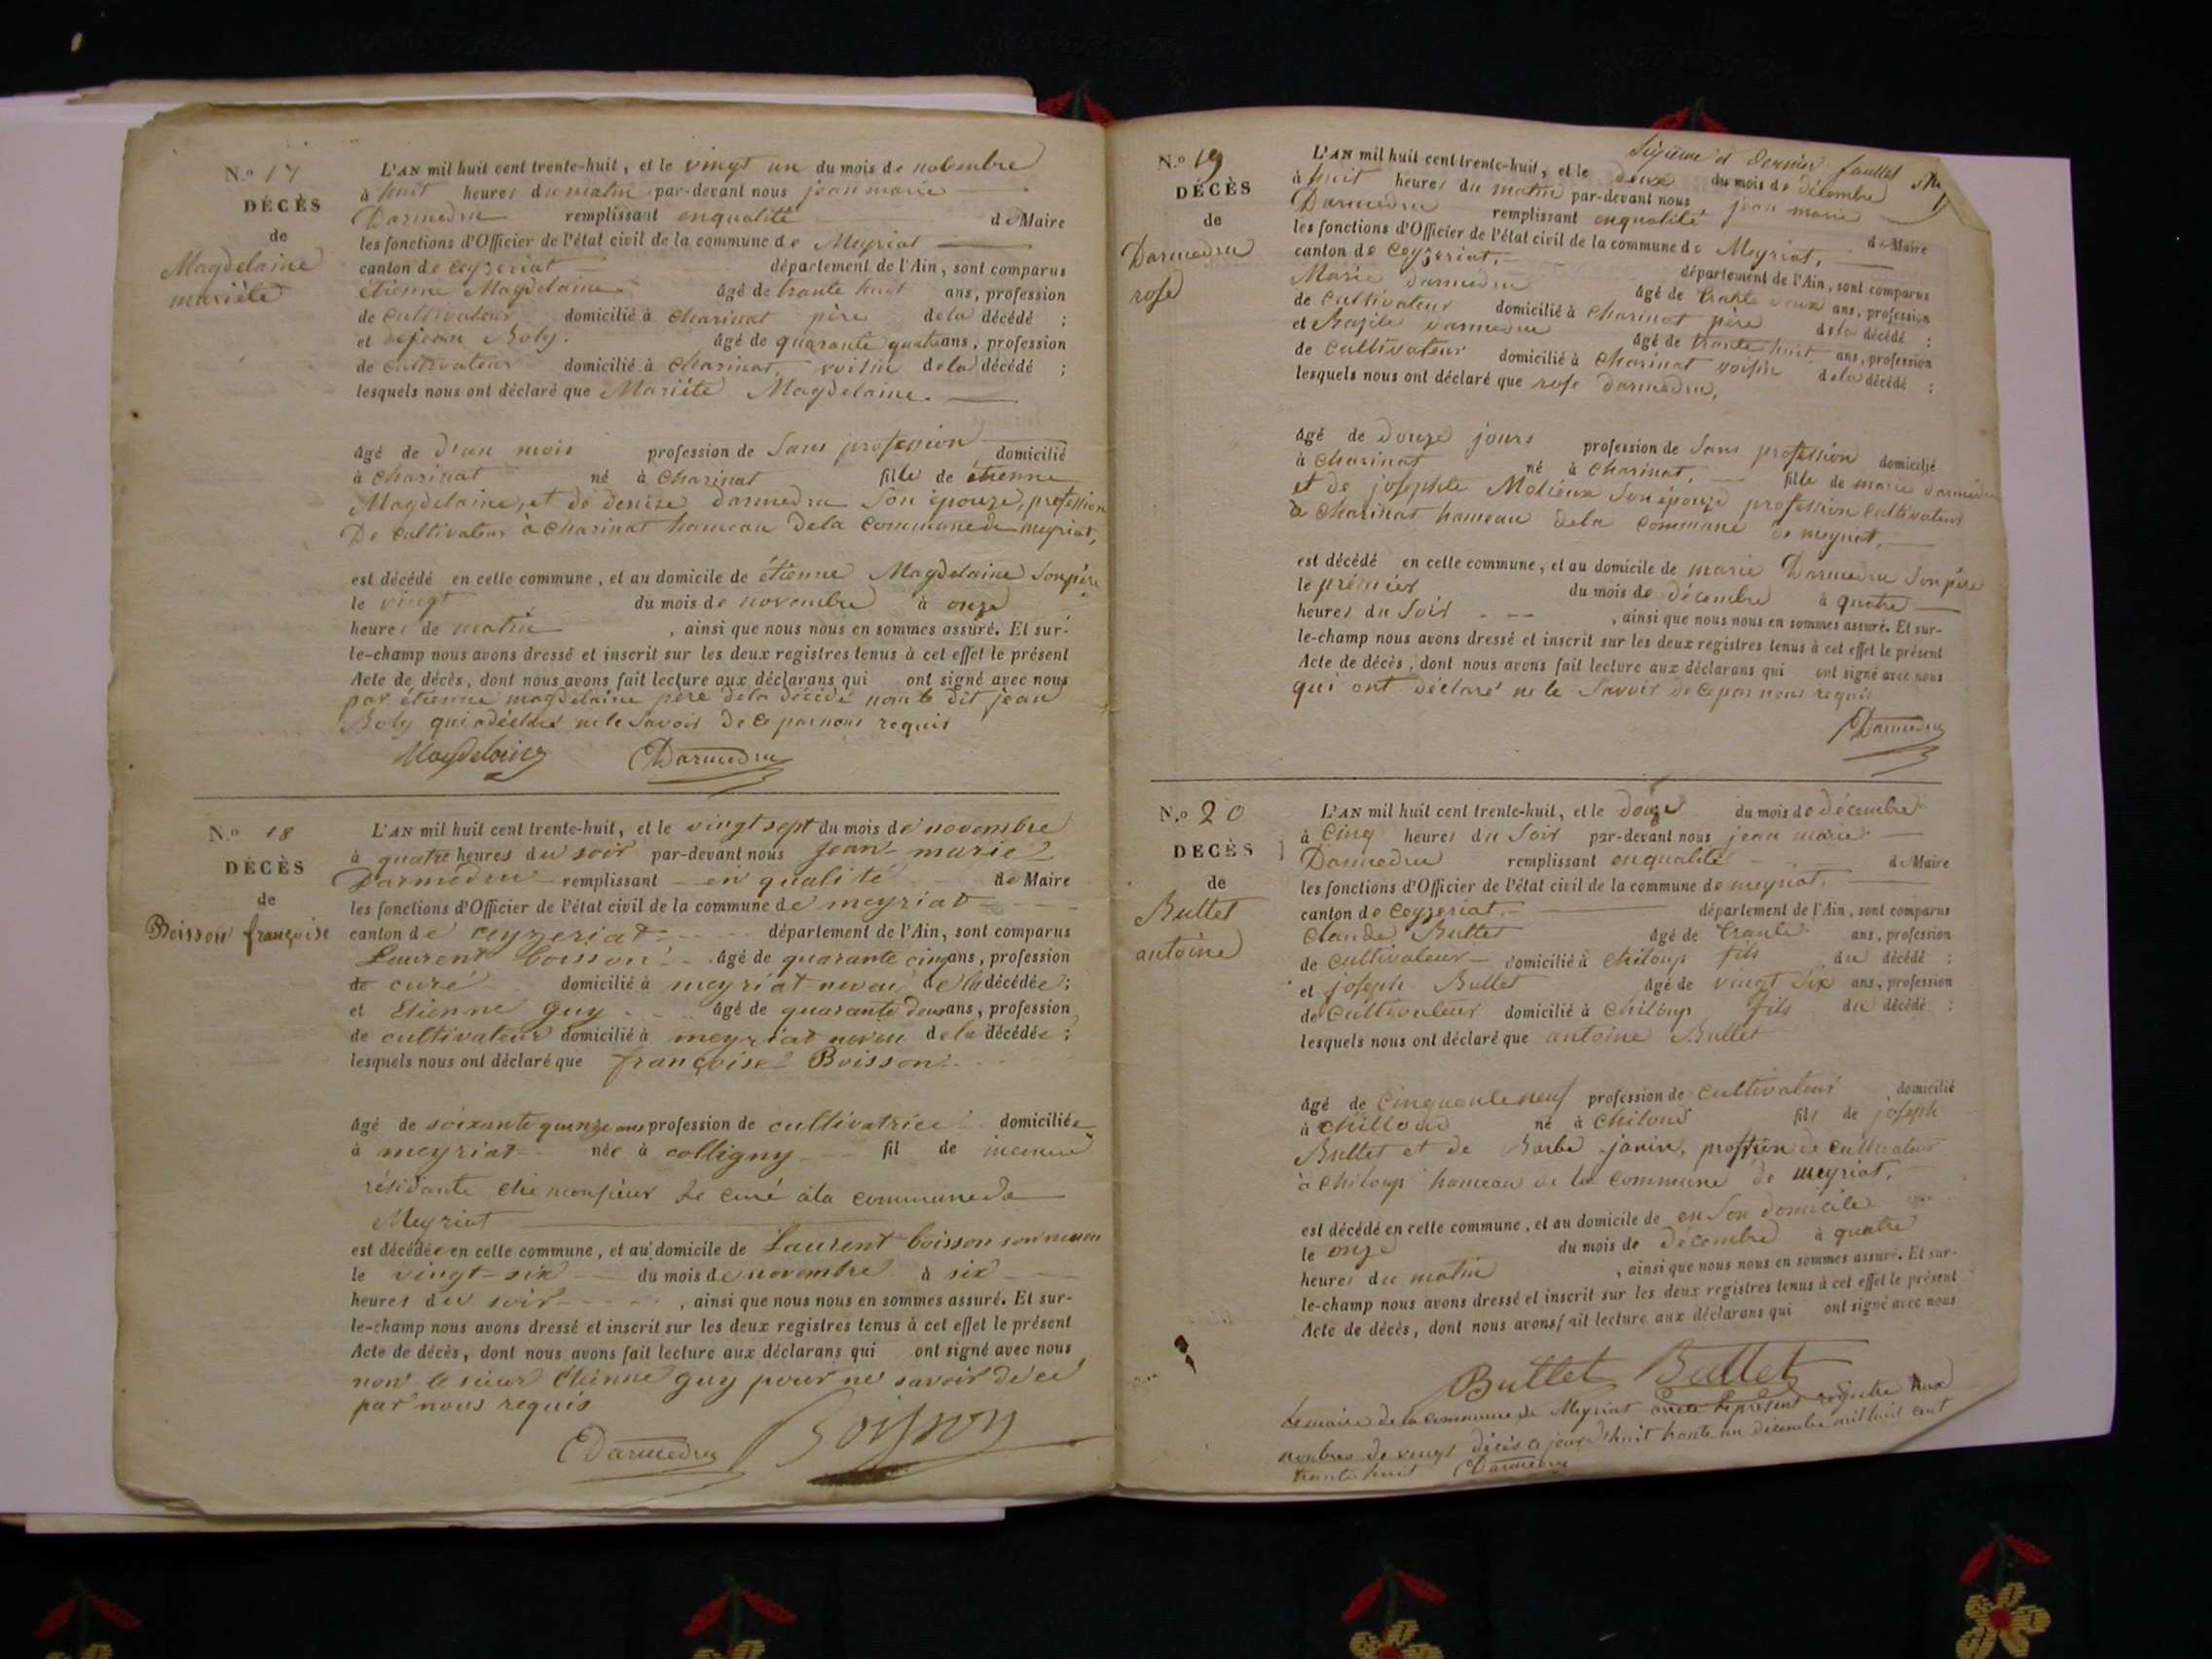 N.o 17
DÉCÈS
de
Magdelaine
mariéte
L'AN mil huit cent trente-huit, et le vingt un du mois de nobembre
à huit heures du matin par-devant nous jean marie
Darmedru remplissant enqualité de Maire
les fonctions d'Officier de l'état civil de la commune de Meyriat
canton de Ceyzeriat département de l'Ain, sont comparus
étienne Magdelaine âgé de trante huit ans, profession
de Cultivateur domicilié à Charinat père dela décédé ;
et dejean Boly. âgé de quarante quatre ans, profession
de Cultivateur domicilié à Charinat, voisin dela décédé ;
lesquels nous ont déclaré que Mariéte Magdelaine.
âgé de d'un mois profession de Sans profession domicilié
à Charinat né à Charinat fille de étienne
Magdelaine, et de denize darmedru Son épouze, profession
De Cultivateur à Charinat hameau dela Commune de meyriat,
est décédé en celle commune, et au domicile de étienne Magdelaine Son père
le vingt du mois de novembre à onze
heures de matin , ainsi que nous nous en sommes assuré. Et sur-
le-champ nous avons dressé et inscrit sur les deux registres tenus à cet effet le présent
Acte de décès, dont nous avons fait lecture aux déclarans qui ont signé avec nous
par étienne magdelaine père dela décédé non le dit jean
Boly qui a déclaré ne le Savoir de ce par nous requis
Magdelaine Darmedru
N.o 18
DÉCÈS
de
Boisson françoise
L'AN mil huit cent trente-huit, et le vingt sept du mois de novembre
à quatre heures du soir par-devant nous Jean-marie
Darmedru remplissant en qualité de Maire
les fonctions d'Officier de l'état civil de la commune de meyriat
canton de ceyzeriat département de l'Ain, sont comparus
Laurent boisson âgé de quarante cinq ans, profession
de curé domicilié à meyriat neveu de la décédée ;
et Etienne Guy âgé de quarante deux ans, profession
de cultivateur domicilié à meyriat neveu de la décédée ;
lesquels nous ont déclaré que françoise Boisson
âgé de soixante quinze ans profession de cultivatrice domiciliée
à meyriat née à colligny fil de
résidante monsieur Le curé àla commune de
Meyriat
est décédée en celle commune, et au domicile de Laurent boisson son neveu
le vingt-six du mois de novembre à six
heures du soir , ainsi que nous nous en sommes assuré. Et sur-
le-champ nous avons dressé et inscrit sur les deux registres tenus à cet effet le présent
Acte de décès, dont nous avons fait lecture aux déclarans qui ont signé avec nous
non le sieur Etienne Guy pour ne savoir de ce
par nous requis
Darmedru Boisson
N.o 19
DÉCÈS
de
Darmedru
rose
Sixième et Dernier
L'AN mil huit cent trente-huit, et le deux du mois de Décembre
à huit heures du matin par-devant nous jean marie
Darmedru remplissant enqualité de Maire
les fonctions d'Officier de l'état civil de la commune de Meyriat,
canton de Ceyzeriat, département de l'Ain, sont comparus
Marie darmedru âgé de trante deux ans, profession
de Cultivateur domicilié à Charinat père dela décédé ;
et Bazile darmedru âgé de trante huit ans, profession
de Cultivateur domicilié à Charinat voisin dela décédé ;
lesquels nous ont déclaré que rose darmedru,
âgé de douze jours profession de Sans profession domicilié
à Charinat né à Charinat, fille de marie darmedru
et de josephte Molieux Son épouze profession Cultivateur
à Charinat hameau dela Commune de meyriat,
est décédé en celle commune, et au domicile de marie Darmedru Son père
le prémier du mois de décembre à quatre
heures du Soir , ainsi que nous nous en sommes assuré. Et sur-
le-champ nous avons dressé et inscrit sur les deux registres tenus à cet effet le présent
Acte de décès, dont nous avons fait lecture aux déclarans qui ont signé avec nous
qui ont déclaré ne le Savoir de ce par nous requis
Darmedru
N.o 20
DÉCÈS
de
Buttet
antoine
L'AN mil huit cent trente-huit, et le douze du mois de décembre
à Cinq heures du Soir par-devant nous jean marie
Darmedru remplissant enqualité de Maire
les fonctions d'Officier de l'état civil de la commune de meyriat,
canton de Ceyzeriat, département de l'Ain, sont comparus
Claude Buttet âgé de trante ans, profession
de Cultivateur domicilié à Chiloup fils du décédé ;
et joseph Buttet âgé de vingt Six ans, profession
de Cultivateur domicilié à Chiloup fils du décédé ;
lesquels nous ont déclaré que antoine Buttet
âgé de Cinquante neuf profession de Cultivateur domicilié
à né à fils de joseph
Buttet et de Barbe janin, de Cultivateur
à Chiloup hameau de la Commune de meyriat,
est décédé en celle commune, et au domicile de en Son domicile
le onze du mois de décembre à quatre
heures du matin , ainsi que nous nous en sommes assuré. Et sur-
le-champ nous avons dressé et inscrit sur les deux registres tenus à cet effet le présent
Acte de décès, dont nous avons fait lecture aux déclarans qui ont signé avec nous
Buttet Buttet
Lemaire dela Commune de Meyriat le présent régistre aux
nombres de vingt décès ce jourd'huit trante un décembre mil huit cent
trante huit Darmedru